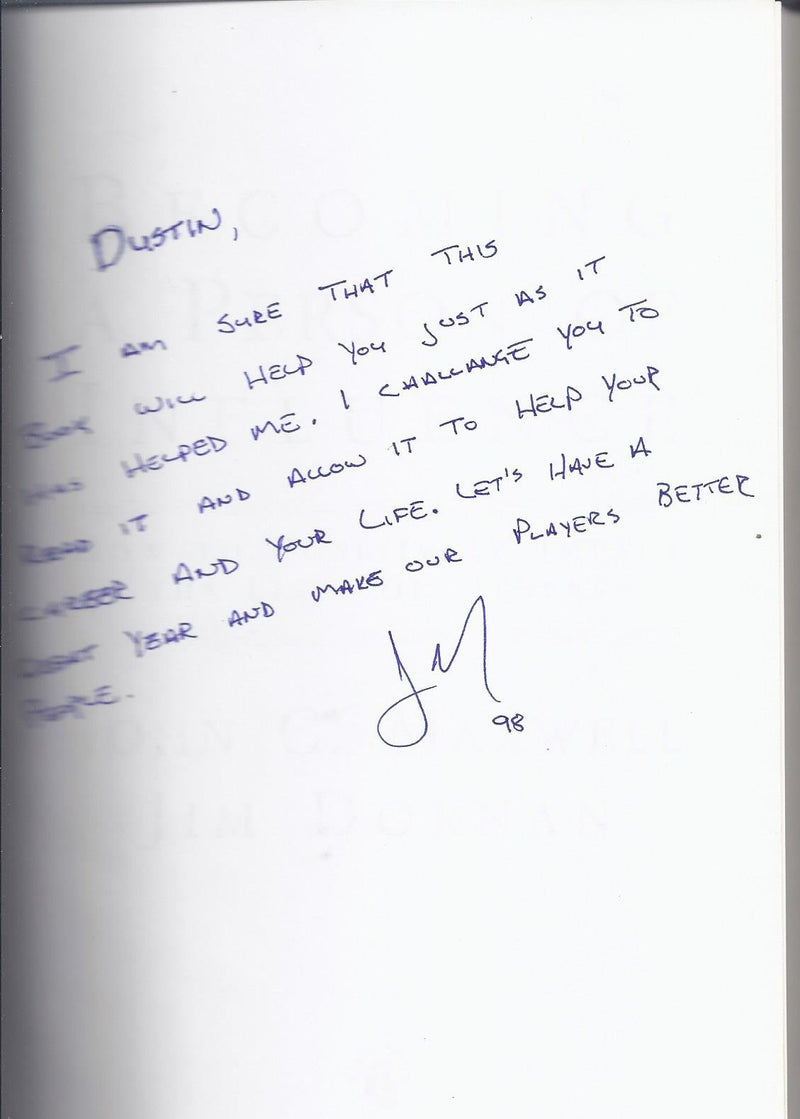 DUSTIN,
I AM SURE THAT THIS
BOOK WILL HELP YOU JUST AS IT
HAS HELPED ME. I CHALLANGE YOU TO
READ IT AND ALLOW IT TO HELP YOUR
CAREER AND YOUR LIFE. LET'S HAVE A
YEAR AND MAKE OUR PLAYERS BETTER
PEOPLE.
JM
98